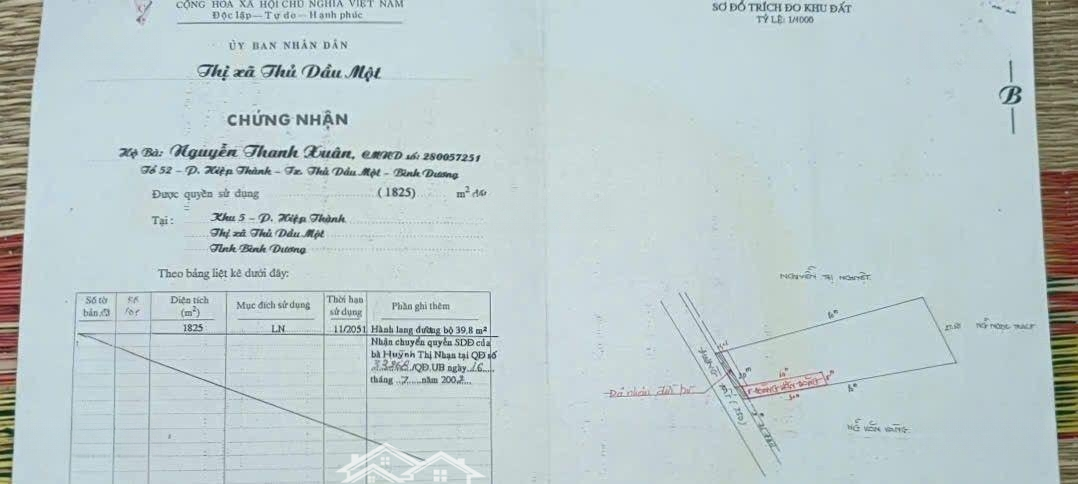 CỘNG HÒA XÃ HỘI CHỦ NGHĨA VIỆT NAM
Độc lập — Tự do — Hạnh phúc
ỦY BAN NHÂN DÂN
Thị xã Thủ Dầu Một
CHỨNG NHẬN
Hộ Bà: Nguyễn Thanh Xuân, CMND số: 280057251
Tổ 52 - P. Hiệp Thành - Tx. Thủ Dầu Một - Bình Dương
Được quyền sử dụng (1825) m²
Tại: Khu 5 - P. Hiệp Thành
Thị xã Thủ Dầu Một
Tỉnh Bình Dương
Theo bảng liệt kê dưới đây:
Số tờ bản đồ Số Diện tích (m²) Mục đích sử dụng Thời hạn sử dụng Phần ghi thêm
1825 LN 11/2051 Hành lang đường bộ 39,8 m²
Nhận chuyển quyền SDĐ của
bà Huỳnh Thị Nhạn tại QĐ số
/QĐ.UB ngày 16
tháng 7 năm 2002
SƠ ĐỒ TRÍCH ĐO KHU ĐẤT
TỶ LỆ: 1/1000
B
NGUYỄN THỊ NGUYỆT
NG NGỌC
Đã nhận đền bù